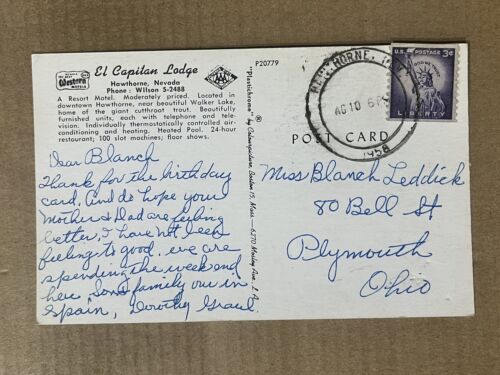 Best Western MOTELS
El Capitan Lodge
Hawthorne, Nevada
Phone: Wilson 5-2488
AAA
A Resort Motel. Moderately priced. Located in
downtown Hawthorne, near beautiful Walker Lake,
home of the giant cutthroat trout. Beautifully
furnished units, each with telephone and tele-
vision. Individually thermostatically controlled air-
conditioning and heating. Heated Pool. 24-hour
restaurant; 100 slot machines; floor shows.
Dear Blanch
Thank for the birthday
card, and do hope your
Mother & Dad are feeling
better, I have not been
feeling to good. we are
spending the week end
here, Son & family our in
Spain, Dorothy
P20779
"Plastichrome" ® by Colourpicture, Boston 15, Mass.
POST CARD
HAWTHORNE,
6 P
1958
U.S. POSTAGE 3¢
IN GOD WE TRUST
LIBERTY
Miss Blanch Leddick
80 Bell St
Plymouth
Ohio